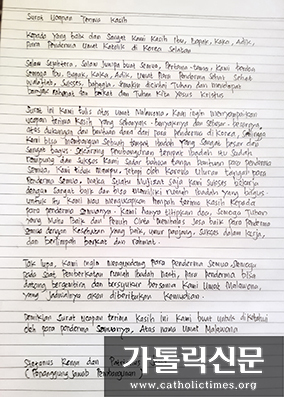 Surat Ucapan Terima Kasih
Kepada Yang baik dan Sangat Kami Kasihi Ibu, Bapak, Kaka, Adik,
Para Penderma Umat Katolik di Korea Selatan
Salam Sejahtera, Salam Jumpa buat semua, Pertama-tama, Kami berdoa
semoga Ibu, Bapak, Kaka, Adik, Umat Para Penderma Sehat
walafiat, Sukses, bahagia, dicintai Tuhan dan mendapat
berkat dan Tuhan Kita Yesus Kristus
Surat ini Kami tulis atas Umat Malauwona, Kami ingin menyampaikan
ucapan terima kasih yang sebanyak-banyaknya dan sebesar-besarnya,
atas dukungan dan bantuan dana dari para penderma di Korea, sehingga
Kami bisa membangun sebuah rumah ibadah yang sangat besar dan
sangat bagus. Sekarang Pembangunan rumah ibadah itu sudah
rampung dan sukses. Kami sadar bahwa tanpa bantuan para penderma
semua, Kami tidak mampu, tetapi oleh karena uluran tangan para
Penderma semua, maka suatu Mujizat saja Kami sukses bekerja
dengan sangat baik dan bisa memiliki rumah ibadah yang bagus
untuk itu Kami mau mengucapkan banyak terima kasih Kepada
para penderma semuanya. Kami hanya titipkan doa, semoga Tuhan
yang Maha Baik dan Penuh Cinta membalas jasa baik Para Penderma
semua dengan Kesehatan yang baik, umur panjang, sukses dalam kerja,
dan berlimpah berkat dan rahmat.
Tak lupa, Kami ingin mengundang Para Penderma semua,
pada saat Pemberkatan Rumah Ibadah nanti, para penderma bisa
datang bergembira dan bersyukur bersama Kami Umat Malauwona,
yang jadwalnya akan diberitakan Kemudian.
Demikian Surat ucapan terima kasih ini Kami buat untuk diketahui
oleh para penderma semuanya, Atas nama Umat Malauwona
dan
(Penanggung Jawab Pembangunan)
가톨릭신문
www.catholictimes.org